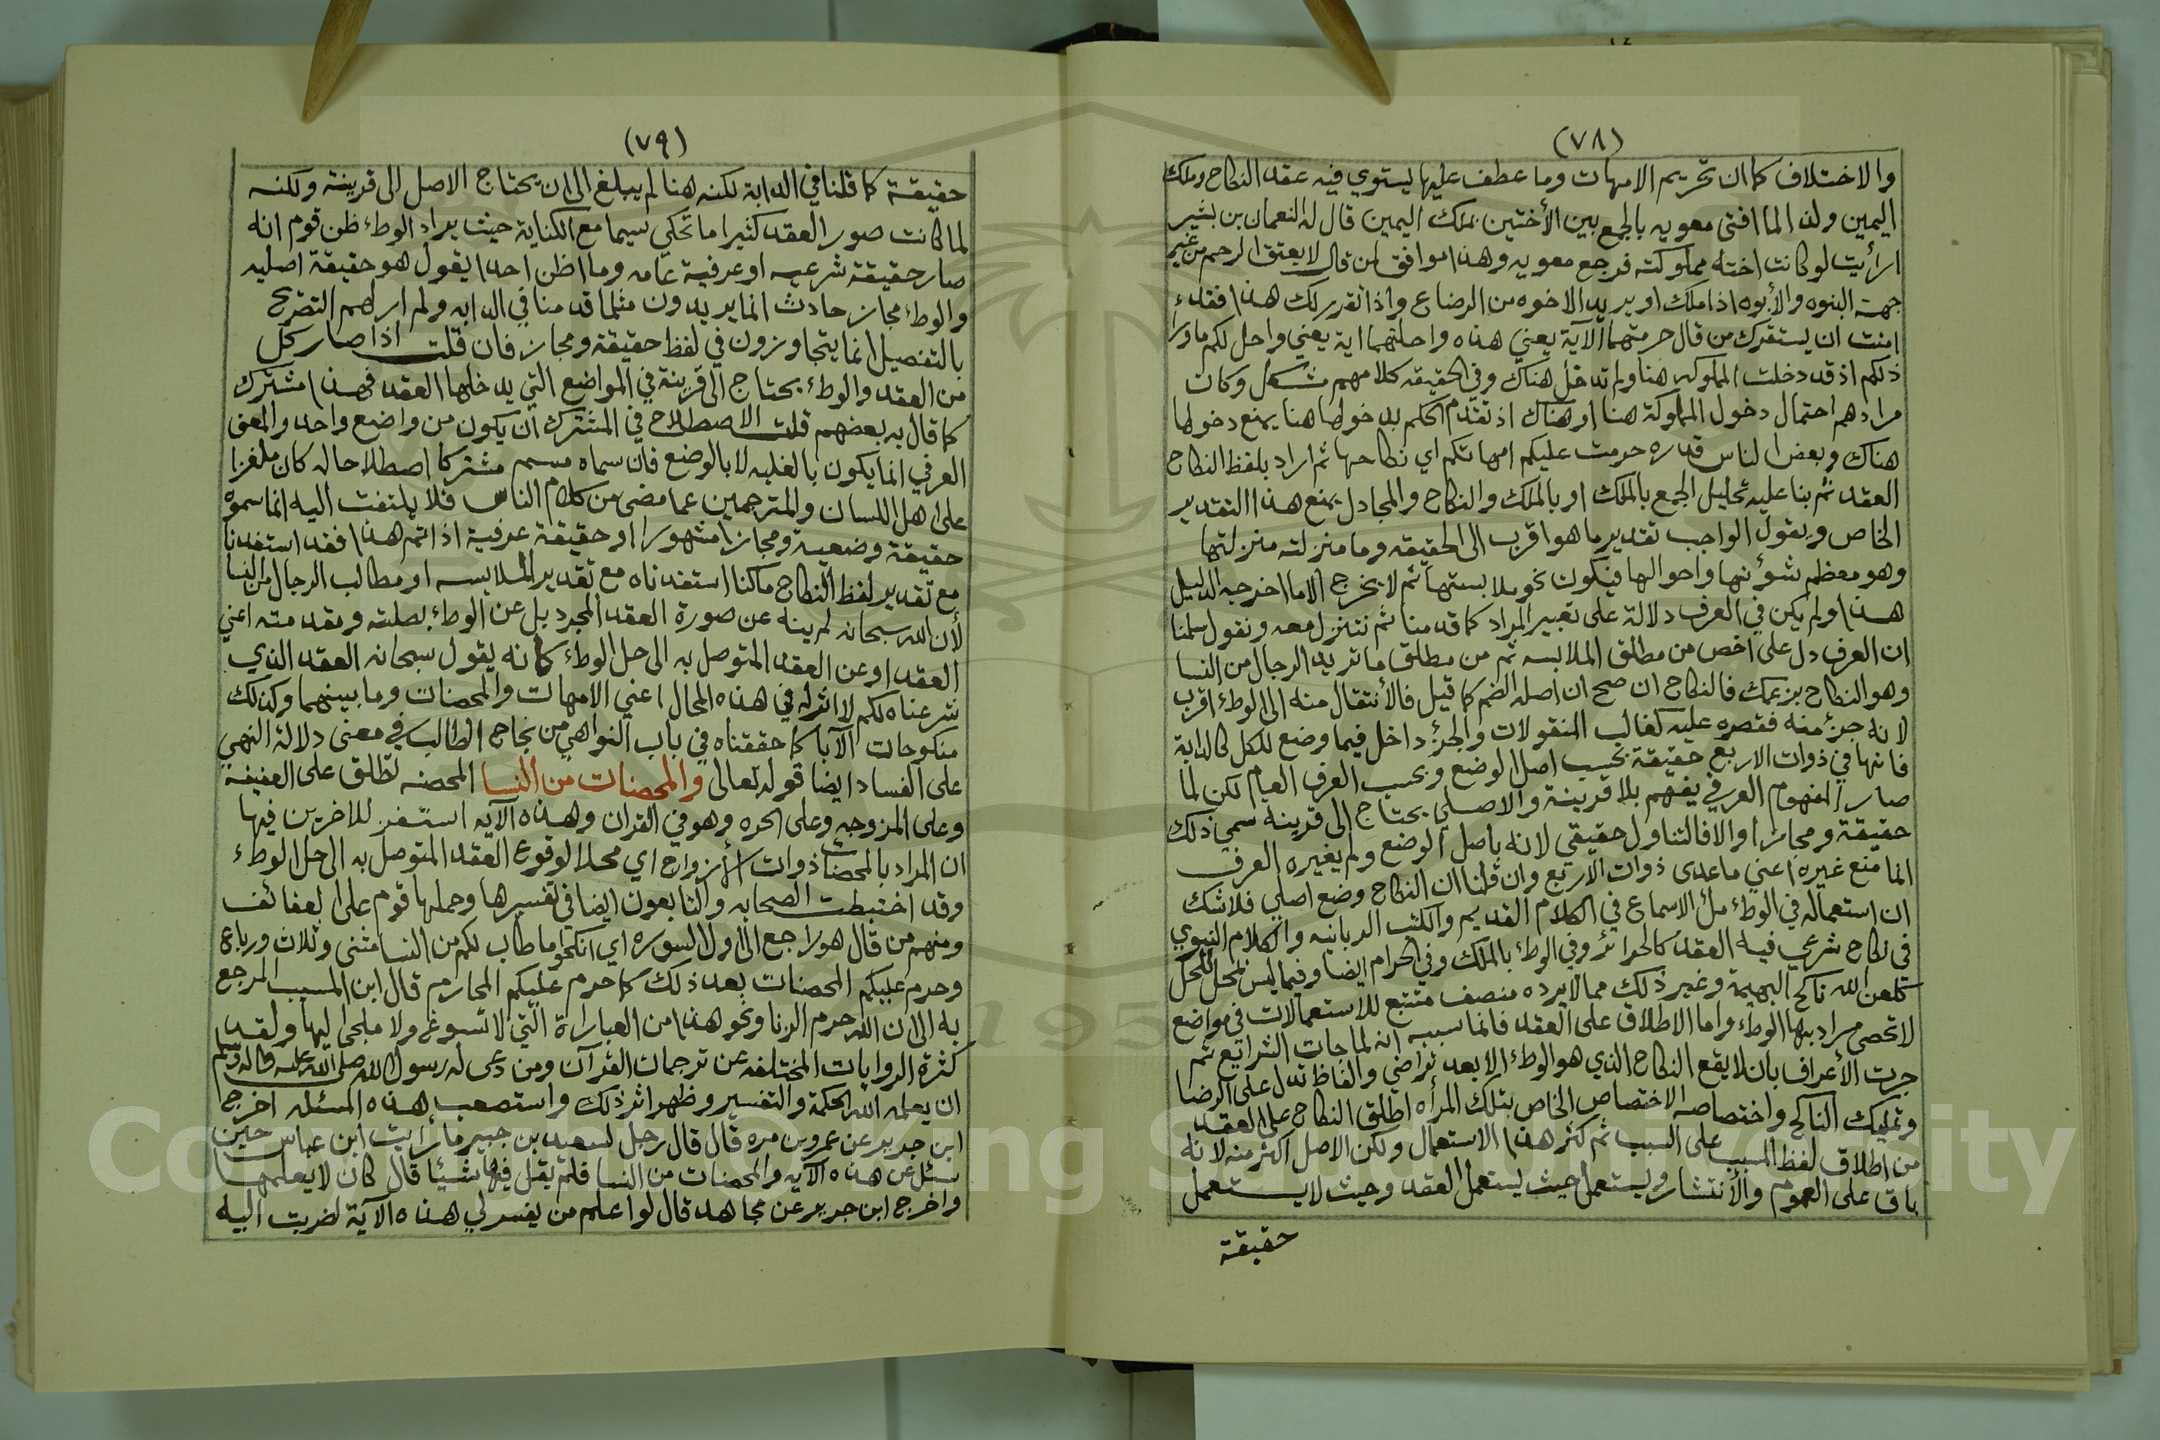 (٧٨)
والاختلاف كما ان تحريم الامهات وما عطف عليها يستوي فيه عقد النكاح وملك
اليمين ولذا لما افتى معويه بالجمع بين الأختين بملك اليمين قال له النعمان بن بشير
ارأيت لو كانت اخته مملوكته فرجع معويه وهذا موافق لمن قال لا يعتق الرحم من غير
جهة البنوه والأبوه اذا ملك او يريد الاخوه من الرضاع واذا تقرر لك هذا فقد
امنت ان يستفزك من قال حرمتهما آلآية يعني هذه واحلتهما اية يعني واحل لكم ما ورا
ذلكم اذ قد دخلت المملوكه هنا ولم تدخل هناك وفي الحقيقه كلامهم مشكل وكان
مرادهم احتمال دخول المملوكة هنا او هناك اذ تقدم الحكم بدخولها هنا يمنع دخولها
هناك وبعض الناس قدره حرمت عليكم امهاتكم اي نكاحها ثم اراد بلفظ النكاح
العقد ثم بنا عليه تحليل الجمع بالملك او بالملك والنكاح والمجادل يمنع هذا التقدير
الخاص ويقول الواجب تقدير ما هو اقرب الى الحقيقه وما منزلته منزلتها
وهو معظم شؤنها واحوالها فيكون نحو ملابستها ثم لا يخرج الا ما اخرجه الدليل
هذا ولم يكن في العرف دلالة على تعيير المراد كما قدمنا ثم نتنزل معه ونقول سلمنا
ان العرف دل على اخص من مطلق الملابسه ثم من مطلق ما تريد الرجال من النسا
وهو النكاح بزعمك فالنكاح ان صح ان اصله الضم كما قيل فالأنتقال منه الى الوطء اقرب
لانه جزء منه فقصره عليه كغالب المنقولات والجزء داخل فيما وضع للكل كالدابة
فانها في ذوات الاربع حقيقة بحسب اصل الوضع وبحسب العرف العام لكن لما
صار المفهوم العرفي يفهم بلا قرينة والاصلي يحتاج الى قرينه سمي ذلك
حقيقة ومجازا والا فالتناول حقيقي لانه باصل الوضع ولم يغيره العرف
انما منع غيره اعني ما عدى ذوات الاربع وان قلنا ان النكاح وضع اصلي فلا شك
ان استعماله في الوطء ملأ الاسماع في الكلام القديم والكتب الربانيه والكلام النبوي
في نكاح شرعي فيه العقد كالحرائر وفي الوطء بالملك وفي الحرام ايضا وفيما ليس بمحل للحل
كلعن الله ناكح البهيمة وغير ذلك مما لا يرده منصف متتبع للاستعمالات في مواضع
لا تحصى مراد بها الوطء واما الاطلاق على العقد فانما سببه انه لما جات الشرايع ثم
جرت الأعراف بان لا يقع النكاح الذي هو الوطء الا بعد تراضي والفاظ تدل على الرضا
وتمليك الناكح واختصاصه الاختصاص الخاص بتلك المرأه اطلق النكاح على العقد
من اطلاق لفظ المسبب على السبب ثم كثر هذا الاستعمال ولكن الاصل اكثر منه لانه
باق على العموم والأنتشار ويستعمل حيث يستعمل العقد وحيث لا يستعمل
حقيقة
(٧٩)
حقيقة كما قلنا في الدابة لكنه هنا لم يبلغ الى ان يحتاج الاصل الى قرينة ولكنه
لما كانت صور العقد كثيرا ما تحكي سيما مع الكناية حيث يراد الوطء ظن قوم انه
صار حقيقة شرعيه او عرفية عامه وما اظن احدا يقول هو حقيقة اصليه
والوطء مجاز حادث انما يريدون مثلما قدمنا في الدابه ولم ار لهم التصريح
بالتفصيل انما يتجاوزون في لفظ حقيقة ومجاز فان قلت اذا صار كل
من العقد والوطء يحتاج الى قرينة في المواضع التي يدخلها العقد فهذا مشترك
كما قال به بعضهم قلت الاصطلاح في المشترك ان يكون من واضع واحد والمعنى
العرفي انما يكون بالغلبه لا بالوضع فان سماه مسم مشتركا اصطلاحا له كان ملغزا
على اهل اللسان والمترجمين عما مضى من كلام الناس فلا يلتفت اليه انما سموه
حقيقة وضعية ومجازا مشهورا او حقيقة عرفية اذا تم هذا فقد استفدنا
مع تقدير لفظ النكاح ما كنا استفدناه مع تقدير الملابسه او مطالب الرجال من النسا
لأن الله سبحانه لم ينه عن صورة العقد المجرد بل عن الوطء بصلته ومقدمته اعني
العقد او عن العقد المتوصل به الى حل الوطء كانه يقول سبحانه العقد الذي
شرعناه لكم لا اثر له في هذه المحال اعني الامهات والمحصنات وما بينهما وكذلك
منكوحات الآبا كما حققناه في باب النواهي من نجاح الطالب في معنى دلالة النهي
على الفساد ايضا قوله تعالى والمحصنات من النسا المحصنه تطلق على العفيفة
وعلى المزوجه وعلى الحره وهو في القران وهذه الآيه استقر للاخرين فيها
ان المراد بالمحصنات ذوات الأزواج اي محلا لوقوع العقد المتوصل به الى حل الوطء
وقد اختبطت الصحابه والتابعون ايضا في تفسيرها وحملها قوم على العفائف
ومنهم من قال هو راجع الى اول السوره اي انكحوا ما طاب لكم من النسا مثنى وثلاث ورباع
وحرم عليكم المحصنات بعد ذلك كما حرم عليكم المحارم قال ابن المسيب المرجع
به الى ان الله حرم الزنا ونحو هذا من العباراة التي لا تسوغ ولا ملجا اليها ولقد
كثرة الروايات المختلفه عن ترجمان القرآن ومن دعى له رسول الله صلى الله عليه واله وسلم
ان يعلمه الله الحكمة والتفسير وظهر اثر ذلك واستصعب هذه المسئله اخرج
ابن جرير عن عمرو بن مره قال قال رجل لسعيد بن جبير ما رأيت ابن عباس حين
سئل عن هذه الآيه والمحصنات من النسا فلم يقل فيها شيئا قال كان لا يعلمها
واخرج ابن جرير عن مجاهد قال لو اعلم من يفسر لي هذه الآية لضربت اليه